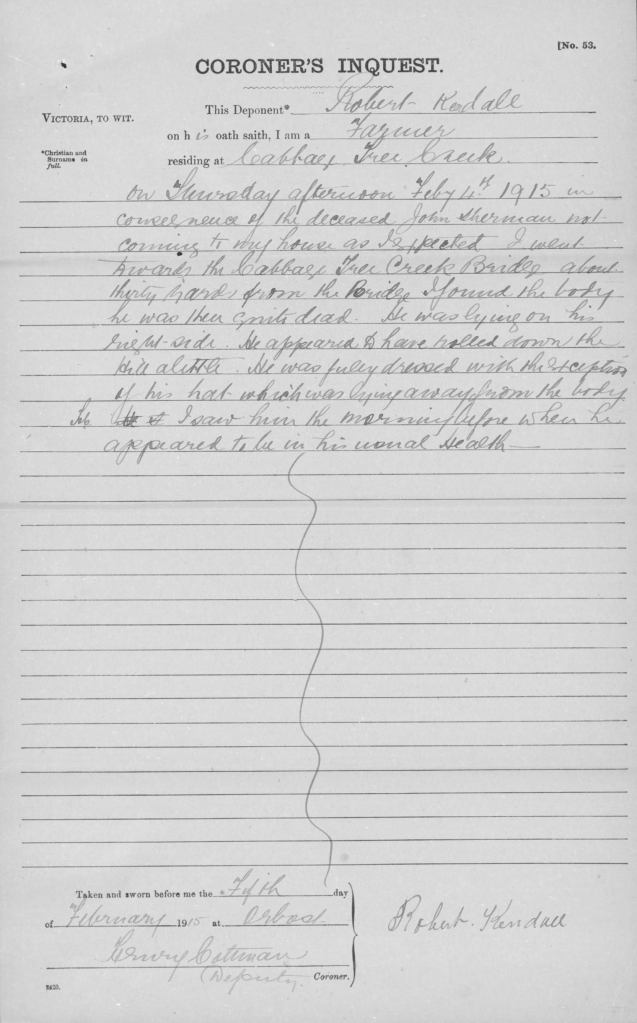 [No. 53.
CORONER'S INQUEST.
VICTORIA, TO WIT.
*Christian and
Surname in
full.
This Deponent* Robert Kendall
on his oath saith, I am a Farmer
residing at Cabbage Tree Creek.
On Thursday afternoon Feby 4th 1915 in
consequence of the deceased John Sherman not
coming to my house as I expected I went
towards the Cabbage Tree Creek Bridge about
thirty yards from the Bridge I found the body
he was then quite dead. He was lying on his
right side. He appeared to have rolled down the
Hill a little. He was fully dressed with the exception
of his hat which was lying away from the body
I saw him the morning before when he
appeared to be in his usual Health
Taken and sworn before me the Fifth day
of February 1915 at Orbost
Coroner.
(Deputy
Robert. Kendall